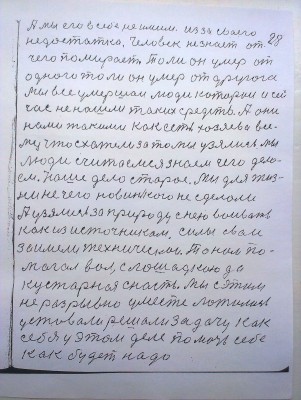 А мы его в себе не имеем. из за своего
недостатка, человек незнает от 28
чего помирает То ли он умер от
одного то ли он умер от другога
Мы все умершаи люди которыи и сей
час не нашли таких средств. А они
нами такими как есть хозяева все
му, что скажем за то мы узялись мы
люди считаемся знаем чего дела
ем. Наше дело старое. Мы для жиз-
ни не чего новинького не сделали
А узялись за природу с нею воивать
как из источникам, силы свои
заимеем техническии. То нам по-
магал вол, с лошадкою да
кустарная снасть. Мы с этим
не разрывно уместе
устовали решали задачу как
себя у этом деле помочь себе
как будет надо